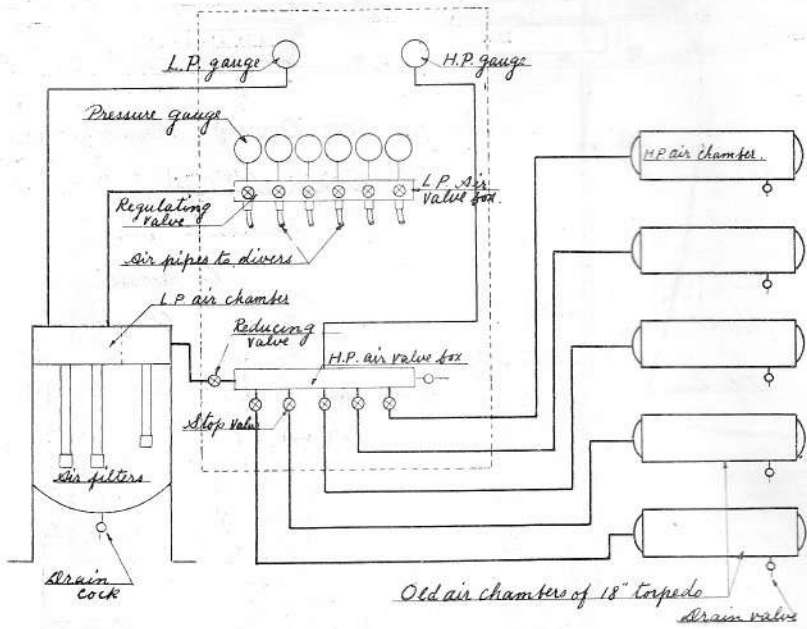 L.P. gauge
H.P. gauge
Pressure gauge
H.P. air chamber.
L.P. Air
valve box.
Regulating
valve
Air pipes to divers
L.P. air chamber
Reducing
valve
H.P. air valve box
Stop valve
Air filters
Drain
cock
Old air chambers of 18" torpedo
Drain valve